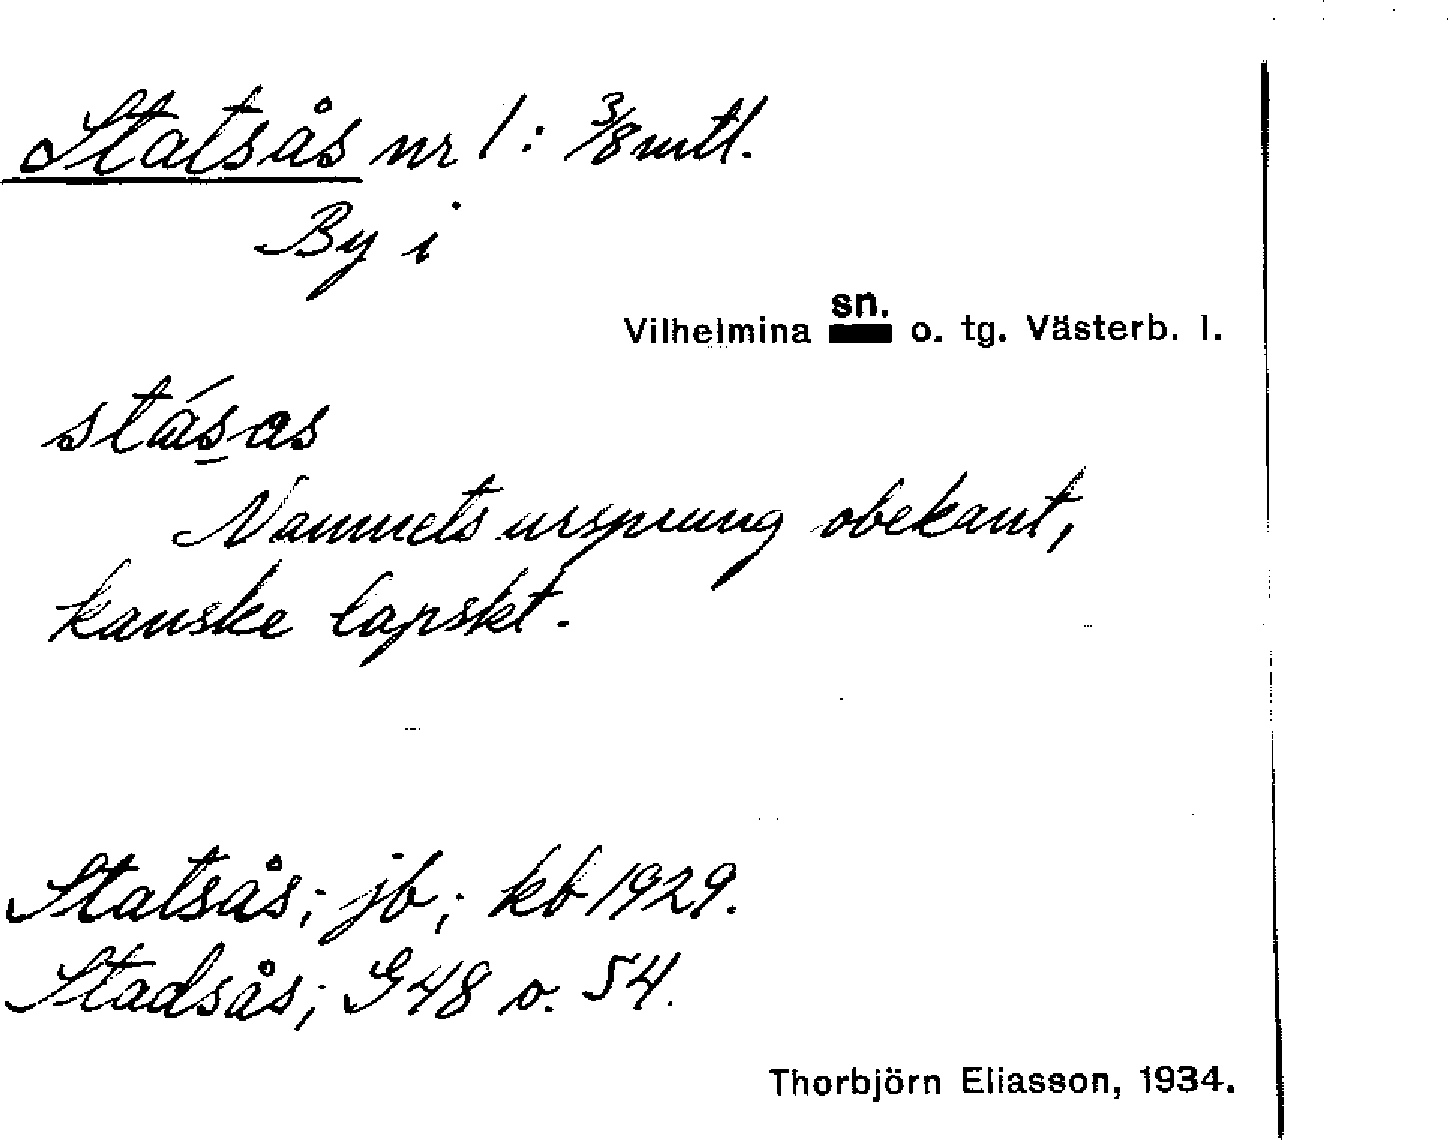 Statsås nr 1: 3/8 mtl.
By i
Vilhelmina sn. o. tg. Västerb. l.
stásas
Namnets ursprung obekant,
kanske lapskt.
Statsås; jb; kb 1929.
Stadsås; G48 o. 54.
Thorbjörn Eliasson, 1934.